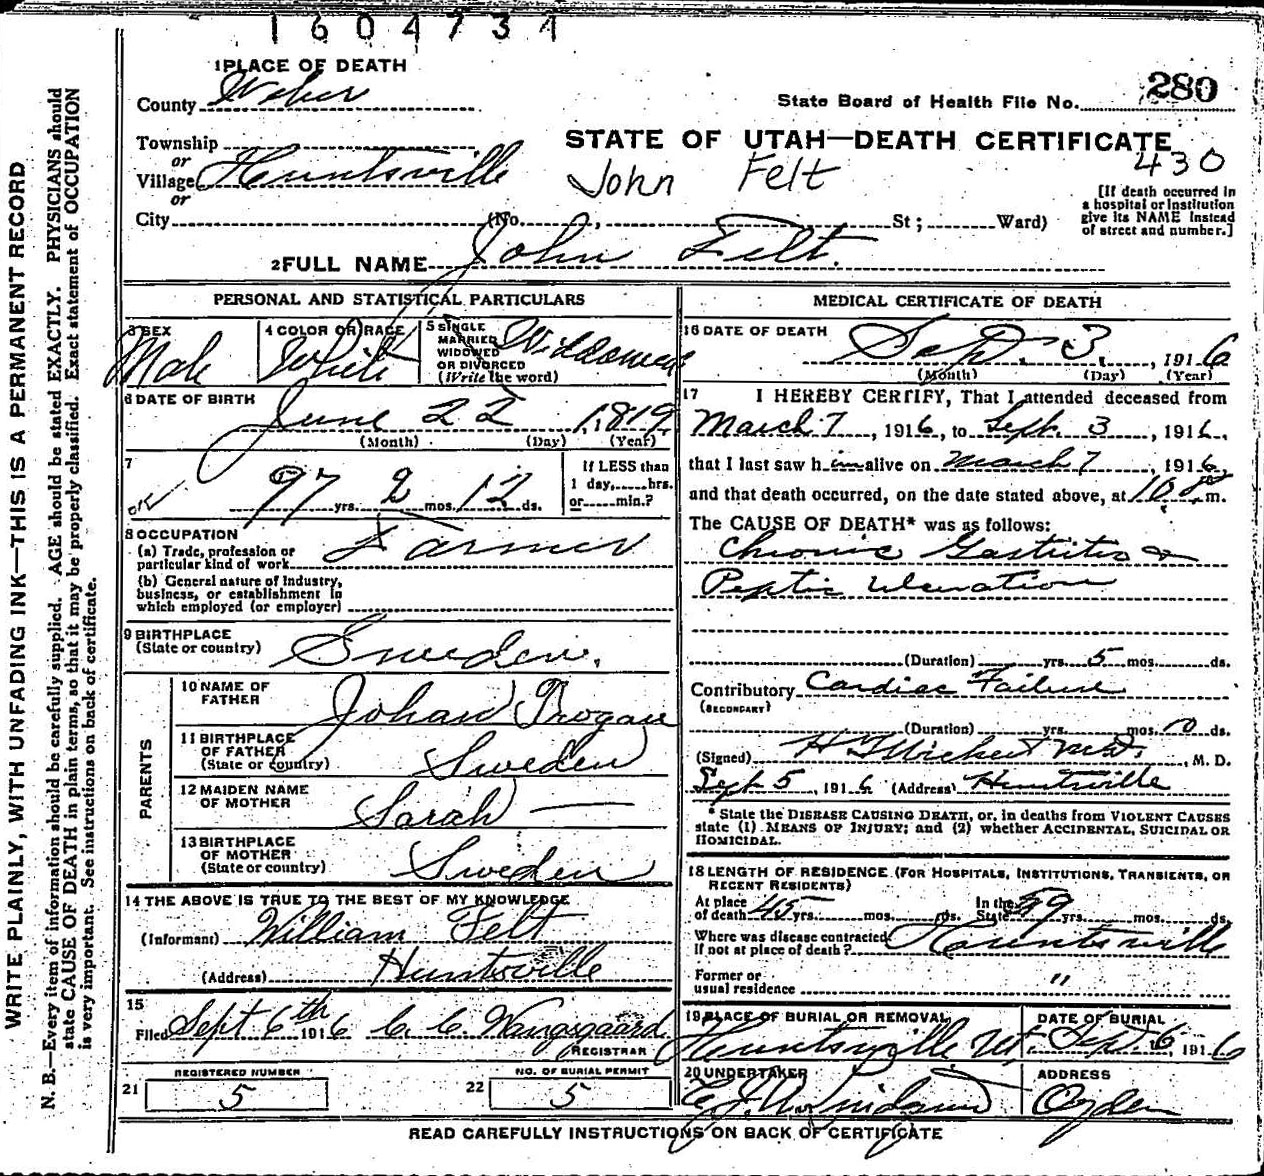 1604734
1 PLACE OF DEATH
County Weber
280
State Board of Health File No.
STATE OF UTAH—DEATH CERTIFICATE
430
Township
or
Village Huntsville
or
John Felt
City (No. , St ; Ward)
[If death occurred in
a hospital or institution
give its NAME instead
of street and number.]
2 FULL NAME John Felt.
PERSONAL AND STATISTICAL PARTICULARS
3 SEX
Male
4 COLOR OR RACE
White
5 SINGLE
MARRIED
WIDOWED
OR DIVORCED
(Write the word)
6 DATE OF BIRTH
June 22, 1819
(Month) (Day) (Year)
7
97 yrs. 2 mos. 12 ds.
If LESS than
1 day, hrs.
or min.?
8 OCCUPATION
(a) Trade, profession or
particular kind of work Farmer
(b) General nature of Industry,
business, or establishment in
which employed (or employer)
9 BIRTHPLACE
(State or country) Sweden.
PARENTS
10 NAME OF
FATHER Johan
11 BIRTHPLACE
OF FATHER
(State or Country) Sweden
12 MAIDEN NAME
OF MOTHER Sarah —
13 BIRTHPLACE
OF MOTHER
(State or country) Sweden
14 THE ABOVE IS TRUE TO THE BEST OF MY KNOWLEDGE
(Informant) William Felt
(Address) Huntsville
15
Filed Sept 6th 1916 C. C. Wangsgaard
REGISTRAR
REGISTERED NUMBER
21 5
NO. OF BURIAL PERMIT
22 5
MEDICAL CERTIFICATE OF DEATH
16 DATE OF DEATH
Sept. 3, 1916
(Month) (Day) (Year)
17 I HEREBY CERTIFY, That I attended deceased from
March 7, 1916, to Sept. 3, 1916,
that I last saw h im alive on March 7, 1916,
and that death occurred, on the date stated above, at 10 P m.
The CAUSE OF DEATH* was as follows:
Chronic Gastritis &
Peptic Ulceration
(Duration) yrs. 5 mos. ds.
Contributory Cardiac Failure
(SECONDARY)
(Duration) yrs. mos. 10 ds.
(Signed) M.D., M. D.
Sept 5, 1916 (Address) Huntsville
* State the DISEASE CAUSING DEATH, or, in deaths from VIOLENT CAUSES
state (1) MEANS OF INJURY; and (2) whether ACCIDENTAL, SUICIDAL OR
HOMICIDAL.
18 LENGTH OF RESIDENCE (FOR HOSPITALS, INSTITUTIONS, TRANSIENTS, OR
RECENT RESIDENTS)
At place
of death 45 yrs. mos. ds. In the
State 59 yrs. mos. ds.
Where was disease contracted
If not at place of death? Huntsville
Former or
usual residence "
19 PLACE OF BURIAL OR REMOVAL
Huntsville Ut.
DATE OF BURIAL
Sept 6, 1916
20 UNDERTAKER
ADDRESS
Ogden
READ CAREFULLY INSTRUCTIONS ON BACK OF CERTIFICATE
WRITE PLAINLY, WITH UNFADING INK—THIS IS A PERMANENT RECORD
N. B.—Every item of information should be carefully supplied. AGE should be stated EXACTLY. PHYSICIANS should
state CAUSE OF DEATH in plain terms, so that it may be properly classified. Exact statement of OCCUPATION
is very important. See instructions on back of certificate.